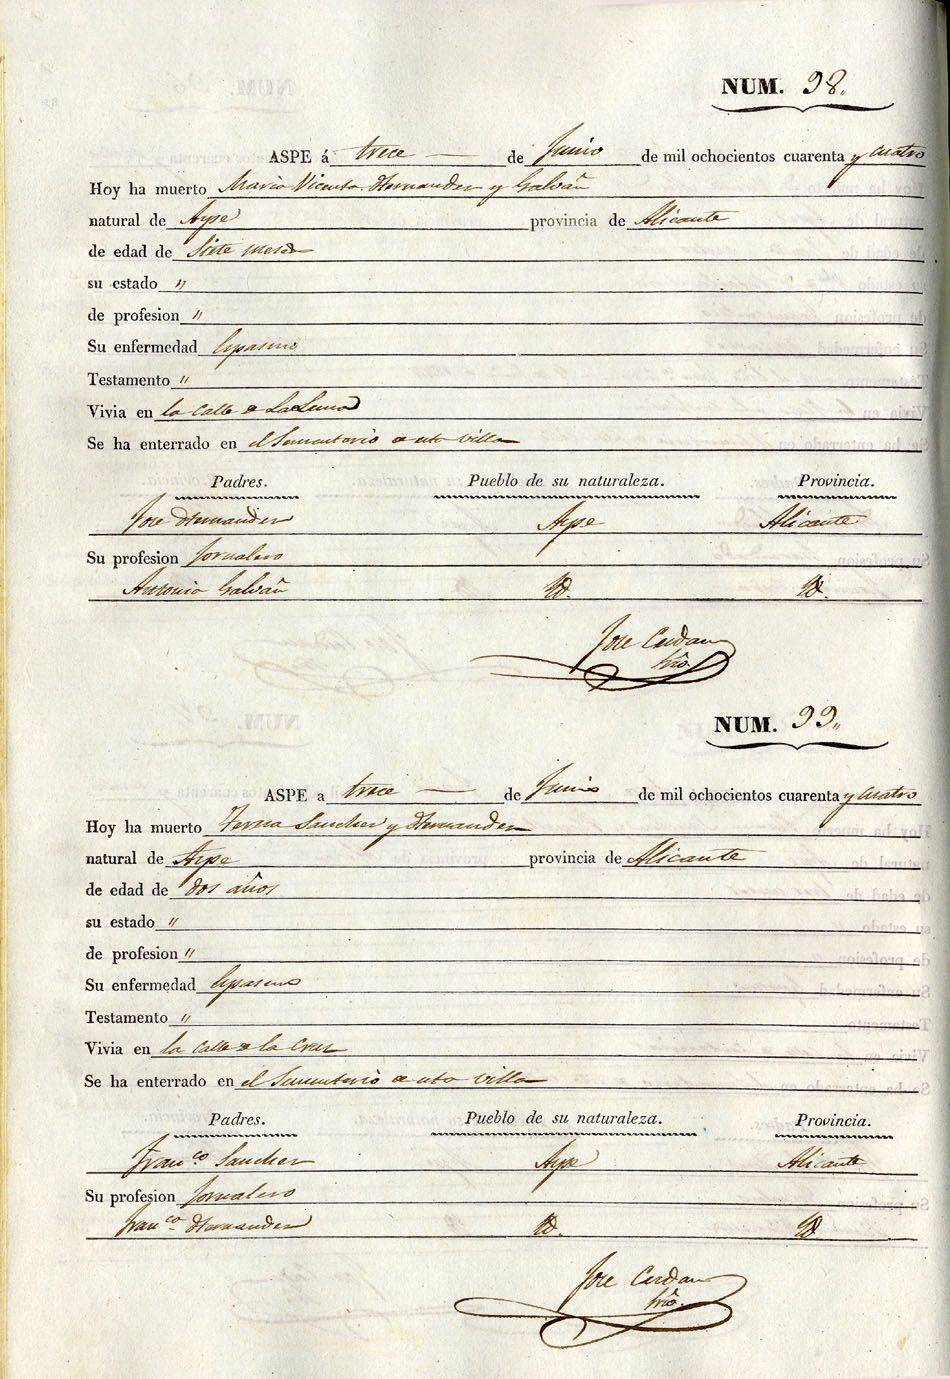 NUM. 98„
ASPE á trece — de Junio de mil ochocientos cuarenta y cuatro
Hoy ha muerto Maria Vicenta Hernandez y Galvañ
natural de Aspe provincia de Alicante
de edad de Siete meses
su estado „
de profesion „
Su enfermedad Espasmo
Testamento „
Vivia en la Calle de La Luna
Se ha enterrado en el Sementerio de esta villa
Padres. Pueblo de su naturaleza. Provincia.
Jose Hernandez Aspe Alicante
Su profesion Jornalero
Antonia Galvañ Id. Id.
Jose Cerdan
NUM. 99„
ASPE a trece — de Junio de mil ochocientos cuarenta y cuatro
Hoy ha muerto Teresa Sanchez y Hernandez
natural de Aspe provincia de Alicante
de edad de dos años
su estado „
de profesion „
Su enfermedad Espasmo
Testamento „
Vivia en la Calle de la Cruz
Se ha enterrado en el Sementerio de esta villa
Padres. Pueblo de su naturaleza. Provincia.
Franco Sanchez Aspe Alicante
Su profesion Jornalero
Franca Hernandez Id. Id.
Jose Cerdan